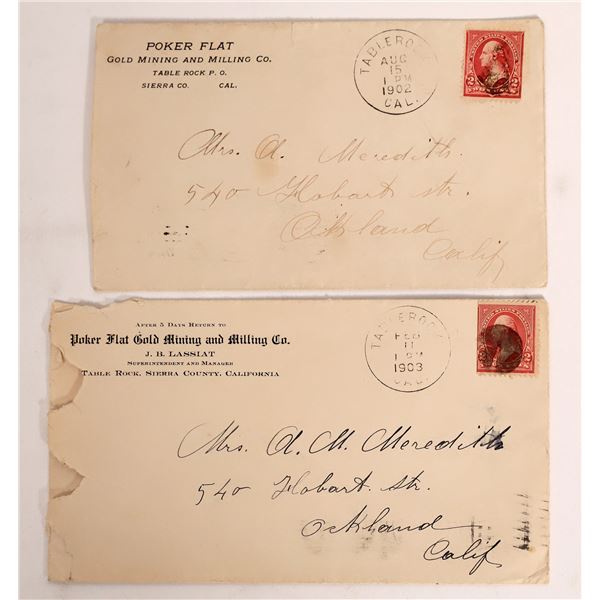 POKER FLAT
GOLD MINING AND MILLING CO.
TABLE ROCK P. O.
SIERRA CO. CAL.
TABLEROCK
AUG
15
1 PM
1902
CAL.
2 2
Mrs. A. Meredith.
540 Hobart str.
Ockland
Calif
AFTER 5 DAYS RETURN TO
Poker Flat Gold Mining and Milling Co.
J. B. LASSIAT
SUPERINTENDENT AND MANAGER
TABLE ROCK, SIERRA COUNTY, CALIFORNIA
TABLEROCK
FEB
11
1 PM
1903
CAL.
2 2
Mrs. A. M. Meredith
540 Hobart Str.
Ockland
Calif